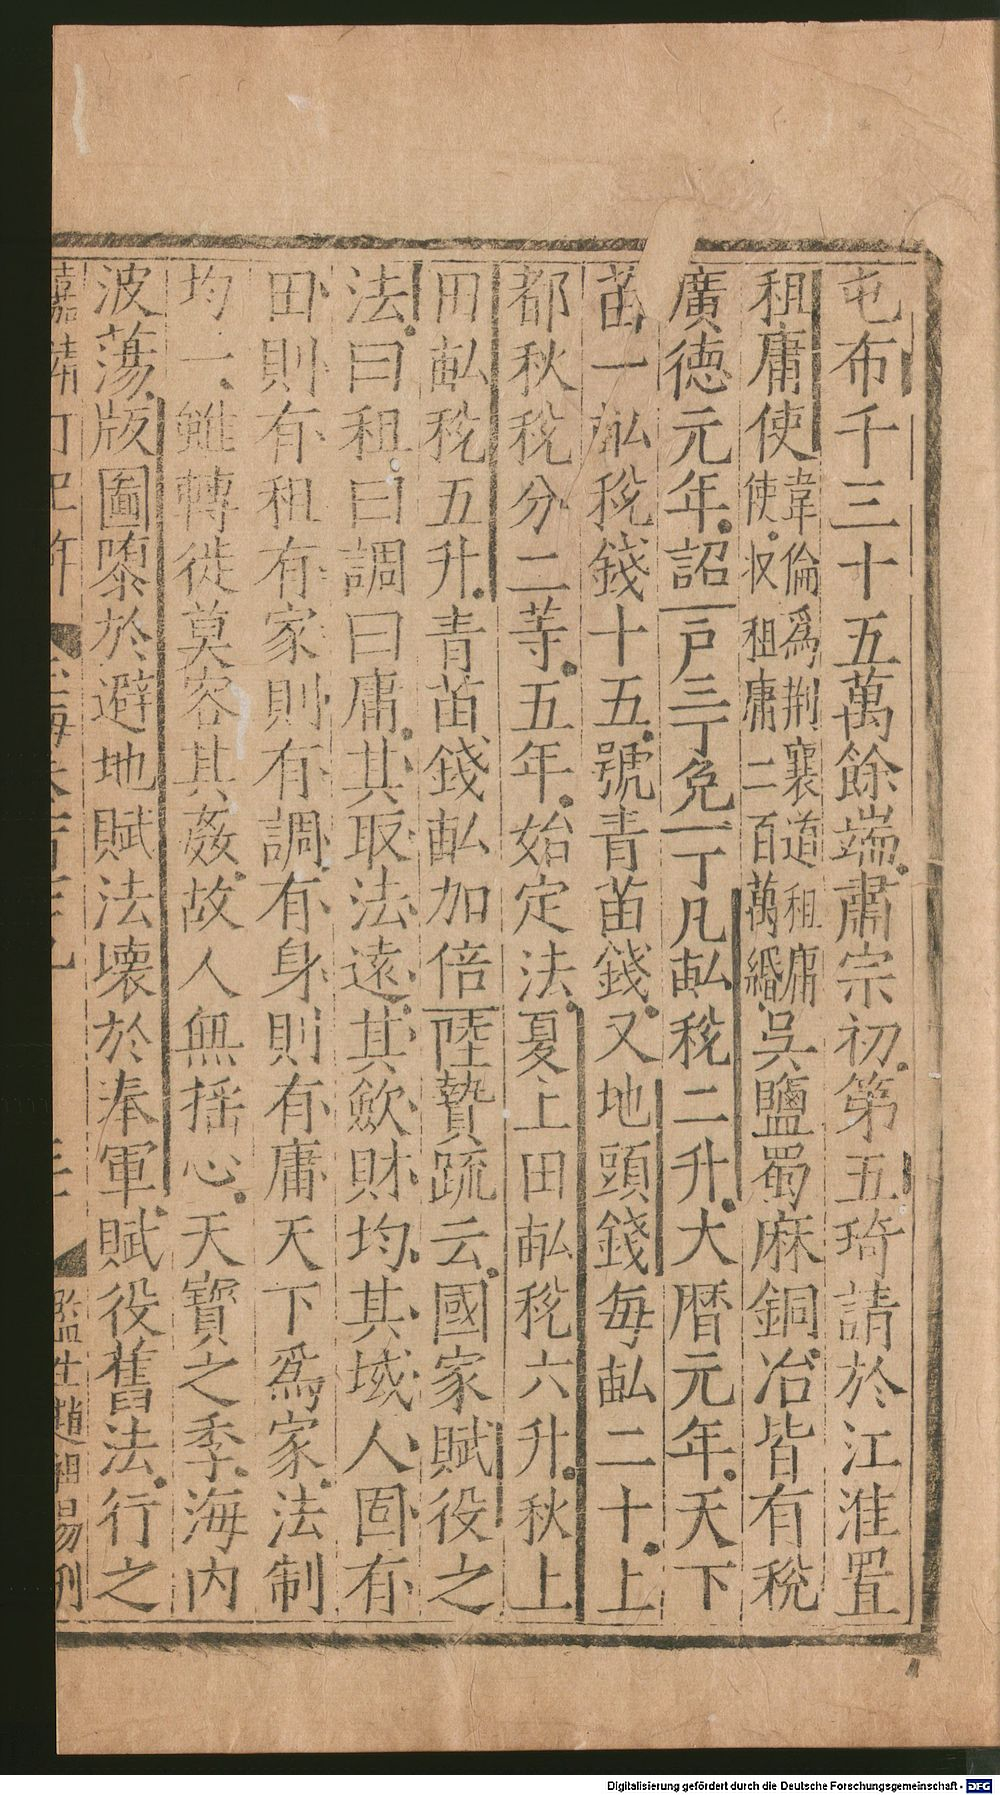 屯布千三十五萬餘端肅宗初第五琦請於江淮置
租庸使韋倫爲荆襄道租庸使收租庸二百萬緡吳鹽蜀麻銅冶皆有稅
廣德元年詔一戶三丁免一丁凡畝稅二升大曆元年天下
苗一畝稅錢十五號青苗錢又地頭錢每畝二十上
都秋稅分二等五年始定法夏上田畝稅六升秋上
田畝稅五升青苗錢畝加倍陸贄䟽云國家賦役之
法曰租曰調曰庸其取法遠其斂財均其域人固有
田則有租有家則有調有身則有庸天下爲家法制
均一雖轉徙莫容其姦故人無揺心天寶之季海內
波蕩版圖隳於避地賦法壊於奉軍賦役舊法行之
嘉靖丁巳年 玉海卷百 監生趙 易刊
Digitalisierung gefördert durch die Deutsche Forschungsgemeinschaft - DFG